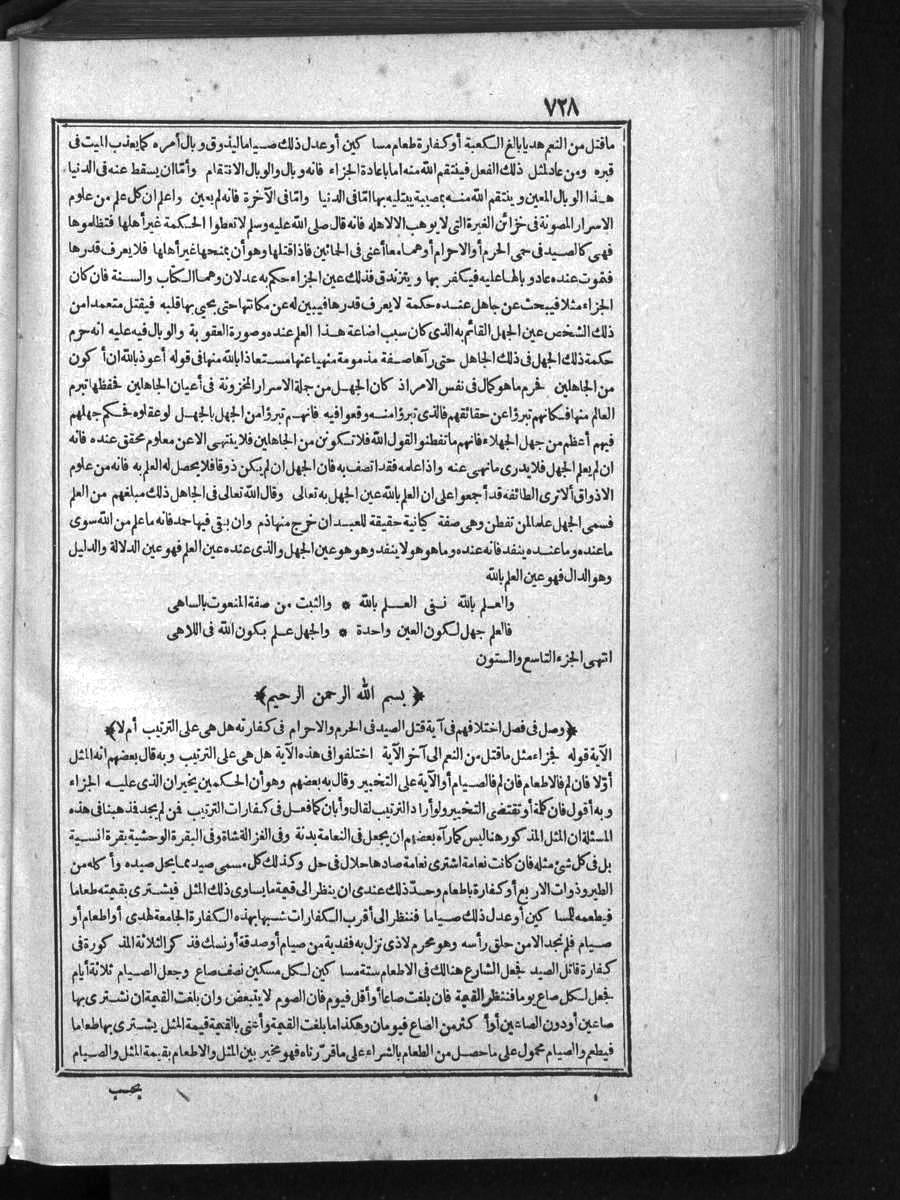 ٧٢٨
ماقتل من النعم هديا بالغ الكعبة أو كفارة طعام مساكين أو عدل ذلك صياما ليذوق وبال أمره كما يعذب الميت فى
قبره ومن عاد لمثل ذلك الفعل فينتقم الله منه اما باعادة الجزاء فانه وبال والوبال الانتقام وأمّا ان يسقط عنه فى الدنيا
هذا الوبال المعين وينتقم الله منه بمصيبة يبتليه بها امّا فى الدنيا وامّا فى الآخرة فانه لم يعين واعلم ان كل علم من علوم
الاسرار المصونة فى خزائن الغيرة التى لا يوهب الا لاهله فانه قال صلى الله عليه وسلم لا تعطوا الحكمة غير أهلها فتظلموها
فهى كالصيد فى حمى الحرم أو الاحرام أو هما معا أعنى فى الحالتين فاذا قتلها وهو أن يمنحها غير أهلها فلا يعرف قدرها
فتموت عنده عاد وبالها عليه فيكفر بها ويتزندق فذلك عين الجزاء حكم به عدلان وهما الكتاب والسنة فان كان
الجزاء مثلا فيبحث عن جاهل عنده حكمة لا يعرف قدرها فيبين له عن مكانتها حتى يحيى بها قلبه فيقتل متعمدا من
ذلك الشخص عين الجهل القائم به الذى كان سبب اضاعة هذا العلم عنده وصورة العقوبة والوبال فيه عليه انه حرم
حكمة ذلك الجهل فى ذلك الجاهل حتى رآها صفة مذمومة منهيا عنها مستعاذا بالله منها فى قوله أعوذ بالله ان أكون
من الجاهلين فحرم ما هو كمال فى نفس الامر اذ كان الجهل من جملة الاسرار المخزونة فى أعيان الجاهلين فحفظها تبرم
العالم منها فكانهم تبرؤا عن حقائقهم فالذى تبرؤا منه وقعوا فيه فانهم تبرؤا من الجهل بالجهل لو عقلوه فحكم جهلهم
فيهم أعظم من جهل الجهلاء فانهم ما تفطنوا لقول الله فلا تكونن من الجاهلين فلا ينتهى الا عن معلوم محقق عنده فانه
ان لم يعلم الجهل فلا يدرى ما نهى عنه واذا علمه فقد اتصف به فان الجهل ان لم يكن ذوقا فلا يحصل له العلم به فانه من علوم
الاذواق ألا ترى الطائفه قد أجمعوا على ان العلم بالله عين الجهل به تعالى وقال الله تعالى فى الجاهل ذلك مبلغهم من العلم
فسمى الجهل علما لمن تفطن وهى صفة كيانية حقيقة للعبد ان خرج منها ذم وان بقى فيها حمد فانه ما علم من الله سوى
ما عنده وما عنده ينفد فانه عنده وما هو هو لا ينفد وهو هو عين الجهل والذى عنده عين العلم فهو عين الدلالة والدليل
وهو الدال فهو عين العلم بالله
والعلم بالله نفى العلم بالله * والثبت من صفة المنعوت بالساهى
فالعلم جهل لكون العين واحدة * والجهل علم بكون الله فى اللاهى
انتهى الجزء التاسع والستون
﴿بسم الله الرحمن الرحيم﴾
﴿وصل فى فصل اختلافهم فى آية قتل الصيد فى الحرم والاحرام فى كفارته هل هى على الترتيب أم لا﴾
الآية قوله فجزاء مثل ما قتل من النعم الى آخر الآية اختلفوا فى هذه الآية هل هى على الترتيب وبه قال بعضهم انه المثل
أوّلا فان لم فالاطعام فان لم فالصيام أو الآية على التخيير وقال به بعضهم وهو أن الحكمين يخيران الذى عليه الجزاء
وبه أقول فان كلمة أو تقتضى التخيير ولو أراد الترتيب لقال وأبان كما فعل فى كفارات الترتيب فمن لم يجد فذهبنا فى هذه
المسئلة ان المثل المذكور هنا ليس كما رآه بعضهم ان يجعل فى النعامة بدنة وفى الغزالة شاة وفى البقرة الوحشية بقرة انسية
بل فى كل شئ مثله فان كانت نعامة اشترى نعامة صادها حلال فى حل وكذلك كل مسمى صيد مما يحل صيده وأكله من
الطير وذوات الاربع أو كفارة باطعام وحدّ ذلك عندى ان ينظر الى قيمة ما يساوى ذلك المثل فيشترى بقيمته طعاما
فيطعمه للمساكين أو عدل ذلك صياما فننظر الى أقرب الكفارات شبها بهذه الكفارة الجامعة لهدى أو اطعام أو
صيام فلم نجد الا من حلق رأسه وهو محرم لاذى نزل به ففدية من صيام أو صدقة أو نسك فذكر الثلاثة المذكورة فى
كفارة قاتل الصيد فجعل الشارع هنالك فى الاطعام ستة مساكين لكل مسكين نصف صاع وجعل الصيام ثلاثة أيام
فجعل لكل صاع يوما فننظر القيمة فان بلغت صاعا أو أقل فيوم فان الصوم لا يتبعض وان بلغت القيمة ان نشترى بها
صاعين أو دون الصاعين أو أكثر من الصاع فيومان وهكذا ما بلغت القيمة وأعنى بالقيمة قيمة المثل يشترى بها طعاما
فيطعم والصيام محمول على ما حصل من الطعام بالشراء على ما قرّرناه فهو مخير بين المثل والاطعام بقيمة المثل والصيام
بحسب